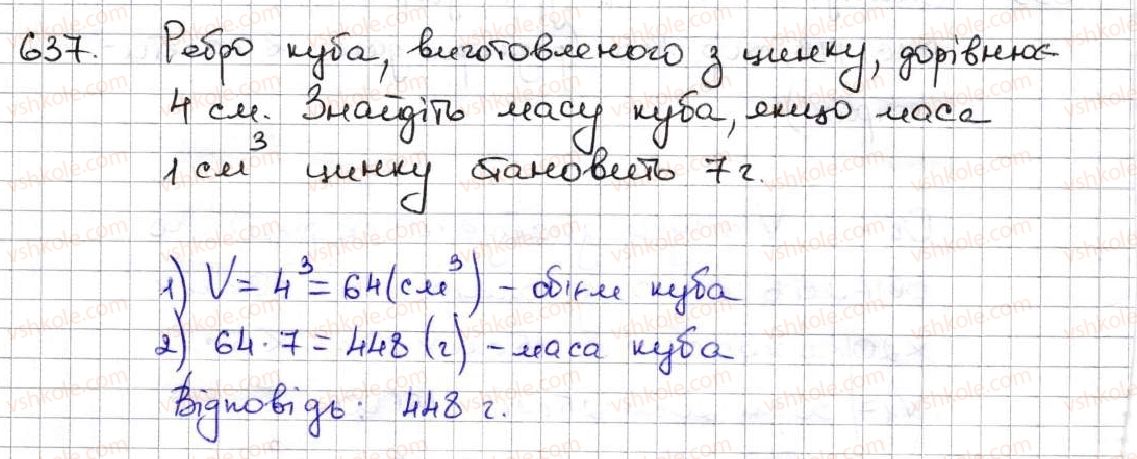 637. Ребро куба, виготовленого з цинку, дорівнює
4 см. Знайдіть масу куба, якщо маса
1 см³ цинку становить 7 г.
1) V = 4³ = 64 (см³) – об'єм куба
2) 64 · 7 = 448 (г) – маса куба
Відповідь: 448 г.